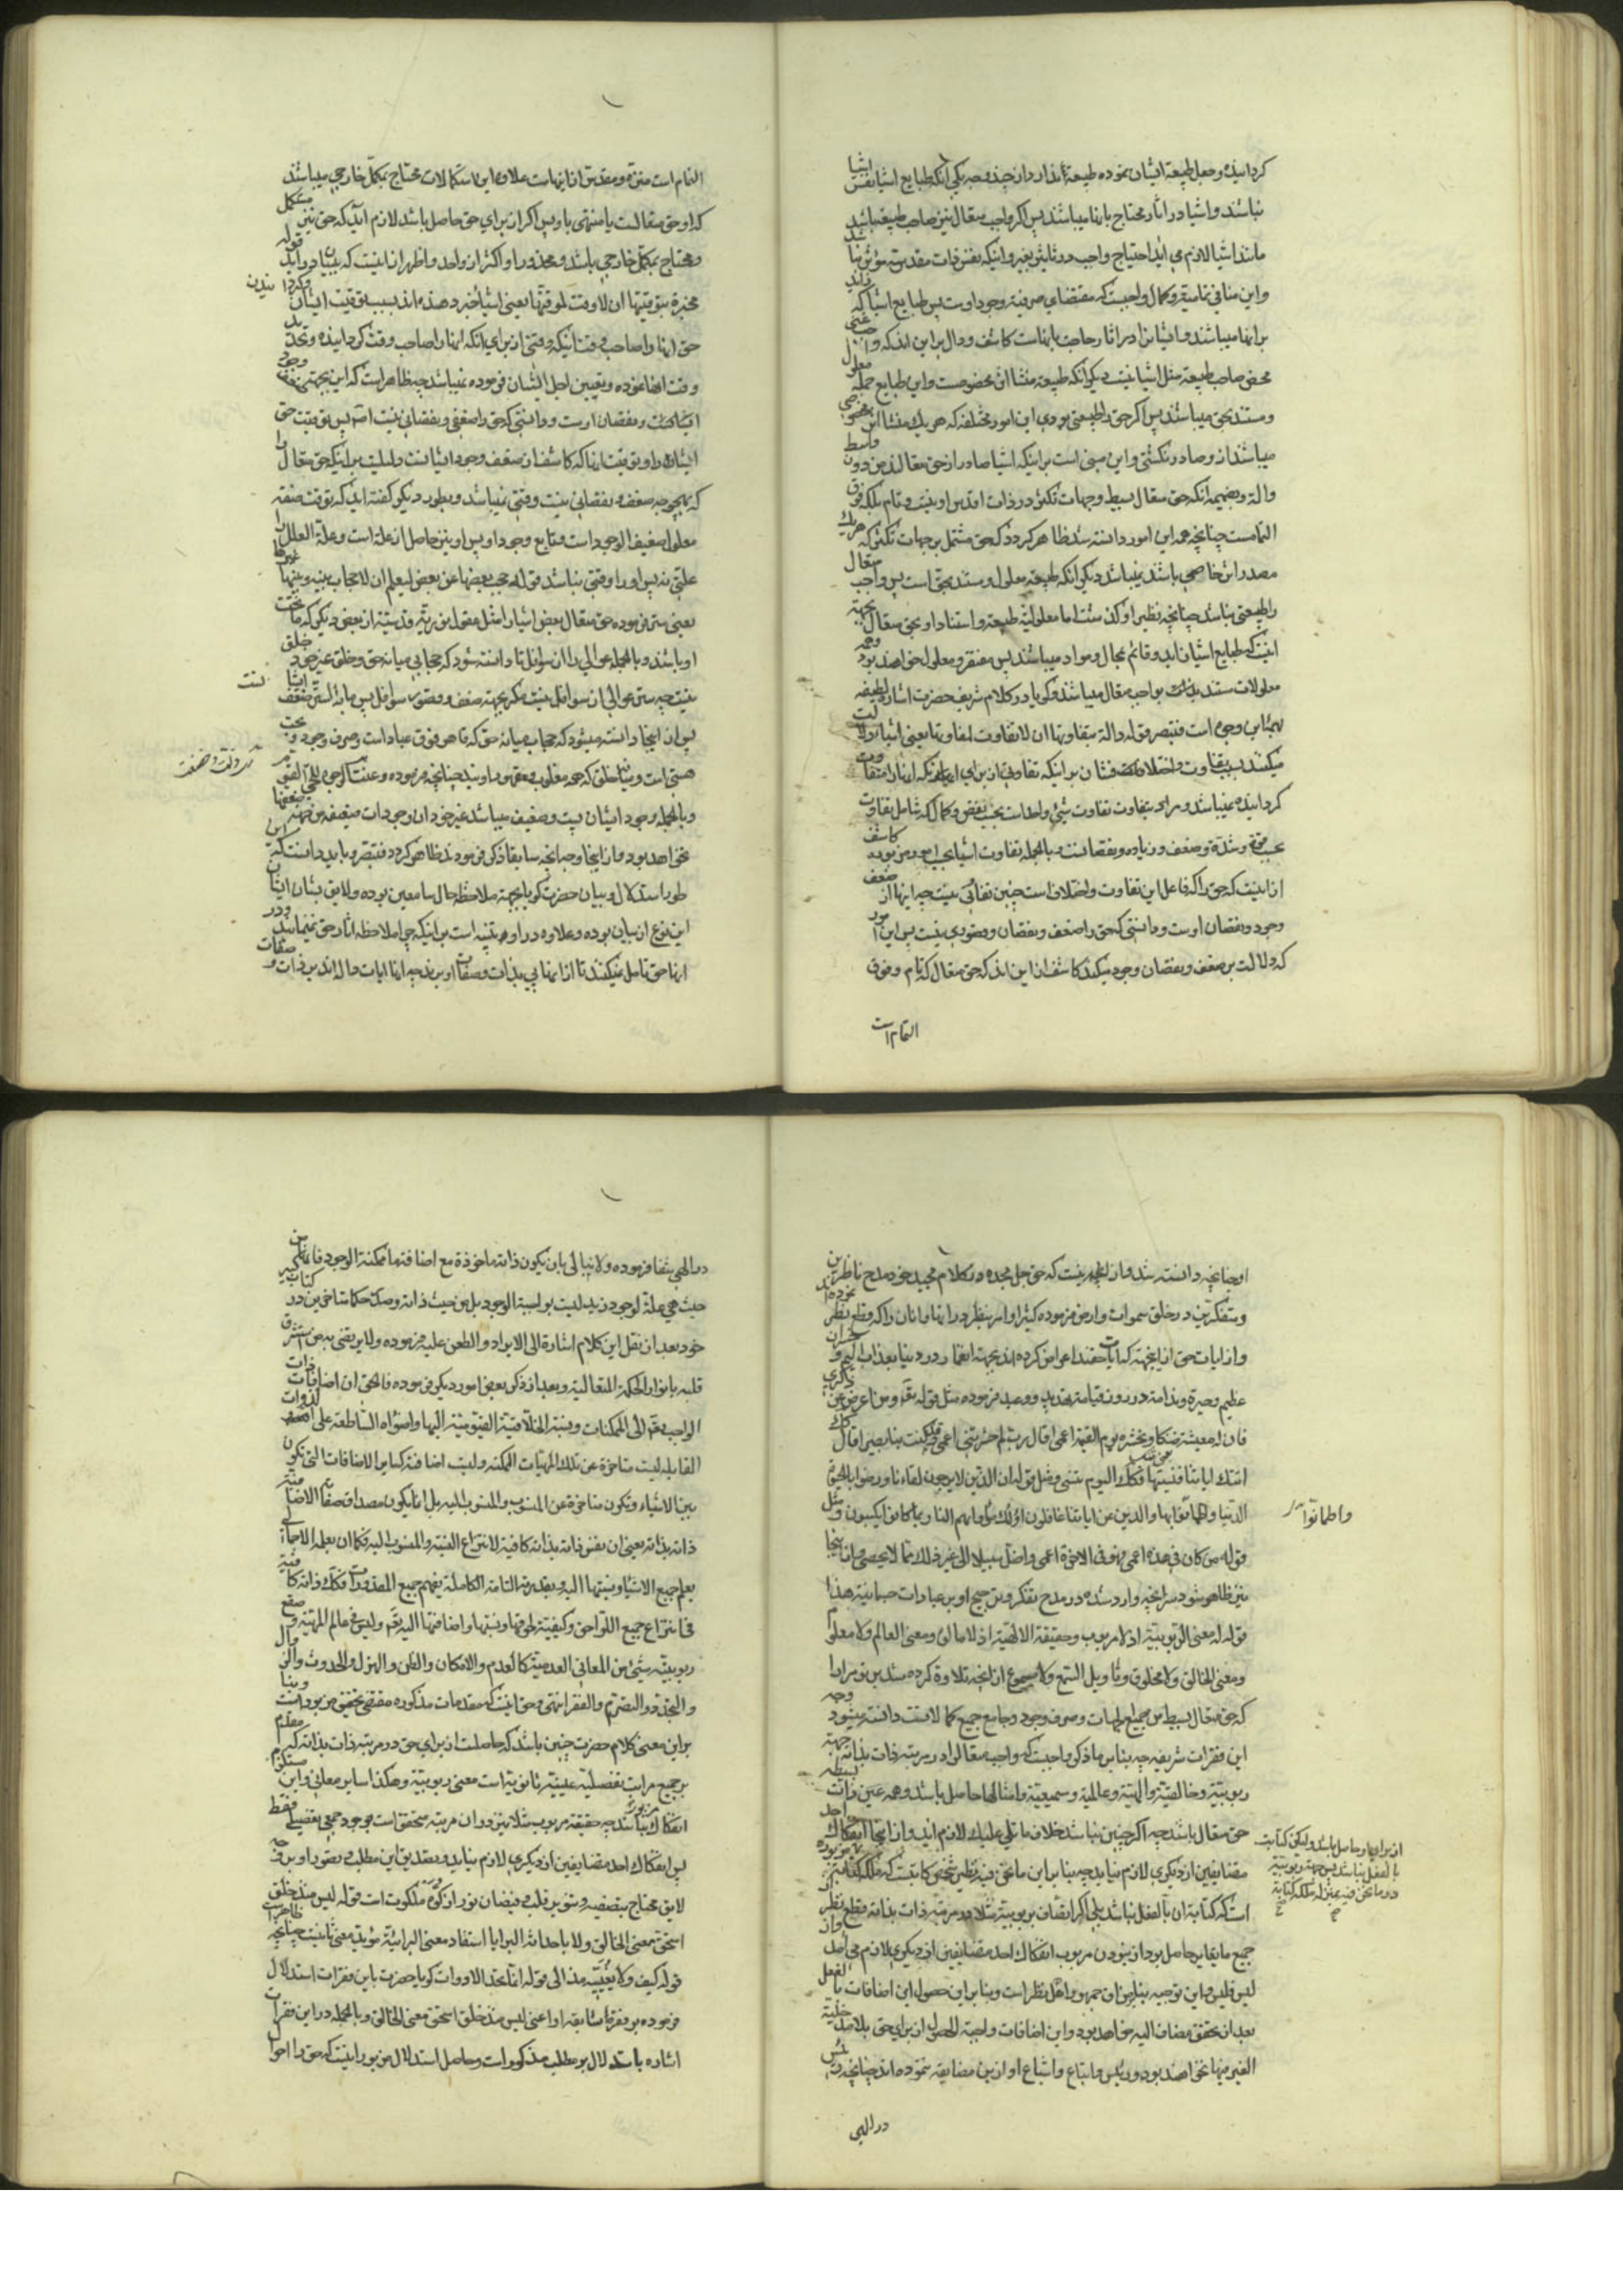 گردانیده وجعل طبیعة ایشان نموده طبیعة ندارد از چند وجه یکی آنکه طبایع اشیا نفس ایشیا
نباشند واشیا در اثار محتاج بانها میباشند پس اگر واجب متعال نیز صاحب طبیعة باشد
مانند اشیا لازم می اید احتیاج واجب در تاثیر بغیر واینکه نفس ذات مقدس مؤثر نباشد
واین منافی تمامیة وکمال واجبست که مقتضای صرفیة وجود اوست پس طبایع اشیا که زاید
بر انها میباشند واشیا در اثار صاحب بانهاست کاشف ودال بر این اند که واجب غنی
محض صاحب طبیعة مثل اشیا نیست دیگر انکه طبیعة منشا اثر مخصوصست واین طبایع جمله معلول
ومستند بحق میباشند پس اگر حق را طبیعتی بودی این امور مختلفه که هر یک منشا اثر مخصوصی
میباشند از او صادر نگشتی واین مبنی است بر اینکه اشیا صادر از حق متعالند من دون واسطه
والة وبضمیمه انکه حق متعال بسیط وجهات تکثر در ذات اقدس او نیست وتام بلکه فوق
التمامست چنانچه همه این امور دانسته شد ظاهر گردد که حق مشتمل بر جهات تکثر که هر یک
مصدر اثر خاصی باشند نمیباشد دیگر انکه طبیعة معلول ومستند بحق است پس واجب متعال
را طبیعتی نباشد چنانچه نظیر او گذشت اما معلولیة طبیعة واستناد او بحق متعال بجهة
اینست که طبایع اشیا زاید وقائم بمحال ومواد میباشند پس مفتقر ومعلول خواهند بود وهمه
معلولات مستند بواجب متعال میباشند وگویا در کلام شریف حضرت اشاره لطیفه
بهمه این وجوه است فتبصر قوله دالة بتفاوتها ان لا تفاوت لمفاوتها یعنی اشیا دلالت
میکنند بسبب تفاوت واختلافشان بر اینکه تفاوتی از برای انکه انها را متفاوت
گردانیده نمیباشد ومراد بتفاوت تفاوت شیئ واحد است بحسب نقص وکمال که شامل تفاوت
بحسب قوة وشدة وضعف وزیاده ونقصانست وبالجمله تفاوت اشیا بحسب امور مزبوره کاشف
از اینست که حق را که فاعل این تفاوت واختلاف است چنین تفاوتی نیست چه اینها از ضعف
وجود ونقصان اوست ودانستی که حق را ضعف ونقصان وقصوری نیست پس این امور
که دلالت بر ضعف ونقصان وجود میکند کاشف از این اند که حق متعال که تام وفوق
التمام است
التمام است منزه ومقدس از انهاست علاوه این استکمالات محتاج بمکمل خارجی میباشند
که او حق متعالست یا منتهی باو پس اگر از برای حق حاصل باشد لازم اید که حق نیز مستکمل
ومحتاج بمکمل خارجی باشد ومحذور او اکثر از واحد واظهر از اینست که ببیان در اید قوله
مخبرة بتوقیتها ان لا وقت لموقتها یعنی اشیا خبر دهنده اند بسبب توقیت ایشان
حق انها را صاحب وقت اینکه وقتی از برای انکه انها را صاحب وقت گردانیده وتحدید
وقت انها نموده وتعیین اجل ایشان فرموده نمیباشد چه ظاهر است که این بجهة ضعف وجود
ایشان ونقصان اوست ودانستی که حق را ضعفی ونقصانی نیست اصلا پس توقیت حق
ایشان را وتوقیت انها که کاشف از ضعف وجود اشیا است دلیلیست بر اینکه حق متعال را
که بهیچ وجه ضعف ونقصانی نیست وقتی نمیباشد وبطور دیگر گفته اید که توقیت صفة
معلول ضعیف الوجود است وتابع وجود او پس او نیز حاصل از علة است وعلة العلل را
علتی نه پس او را وقتی نباشد قوله حجب بعضها عن بعض لیعلم ان لا حجاب بینه وبینها غیرها
یعنی ستر فرموده حق متعال بعض اشیا را مثل عقول قدسیة از بعض دیگر که ما تحت
او باشند وبالجمله عوالی را از سوافل تا دانسته شود که حجابی میانه حق وخلق غیر خود خلق
نیست چه ستر عوالی از سوافل نیست مگر بجهة ضعف وقصور سوافل پس ما به الستر ضعف
پس از اینجا دانسته میشود که حجاب میانه حق که قاهر فوق عباد است وصرف وجود وبحت
هستی است ومیانه خلق که همه مغلوب ومقهور اویند چنانچه فرموده وعنت الوجوه للحی القیوم
وبالجمله وجود ایشان پست وضعیف میباشد غیر خود ان وجودات ضعیفه من جهة ضعفها
نخواهد بود واز اینجا وجه انچه سابقا ذکر فرمودند ظاهر گردد فتبصر وباید دانست که این
طور استدلال وبیان حضرت گویا بجهة ملاحظه حال سامعین بوده ولایق بشان ایشان
این نوع از بیان بوده وعلاوه در او تنبیه است بر اینکه چرا ملاحظه اثار حق نمینمایند ودر
انها حق تامل نمیکنند تا از انها پی بذات وصفات او برند چه انها ایات داله اند بر ذات وصفات
او چنانچه دانسته شد واز اینجهتست که حق جل مجده در کلام مجید خود مدح ناظرین
ومتفکرین در خلق سموات وارض فرموده کثیرا وامر بنظر در انها وانان را که قطع نظر نموده اند
واز ایات حق از اینجهة که ایات حقند اعراض کرده اند بجهة انها در دنیا بعذاب الیم وخسران
عظیم وحیرة وندامة در روز قیامة تهدید ووعید فرموده مثل قوله تعالی ومن اعرض عن ذکری
فان له معیشة ضنکا ونحشره یوم القیمة اعمی قال رب لم حشرتنی اعمی وقد کنت بصیرا قال کذلک
اتتک ایاتنا فنسیتها وکذلک الیوم تنسی ومثل قوله ان الذین لا یرجون لقاءنا ورضوا بالحیوة
الدنیا واطمانوا بها والذین هم عن ایاتنا غافلون اولئک ماویهم النار بما کانوا یکسبون ومثل
واطمانوا
قوله من کان فی هذه اعمی فهو فی الاخرة اعمی واضل سبیلا الی غیر ذلک مما لا یحصی واز اینجا
نیز ظاهر شود سر انچه وارد شده در مدح تفکر وترجیح او بر عبادات جسمانیة هذا
قوله له معنی الربوبیة اذ لا مربوب وحقیقة الالهیة اذ لا مالوه ومعنی العالم ولا معلوم
ومعنی الخالق ولا مخلوق وتاویل السمع ولا مسموع از انچه تلاوة کرده شد بر تو مرارا
که حق متعال بسیط من جمیع الجهات وصرف وجود وجامع جمیع کمالاتست دانسته میشود وجه
این فقرات شریفه چه بنابر ما ذکر واجبست که واجب متعال را در مرتبه ذات بذاته جهة
ربوبیة وخالقیة والهیة وعالمیة وسمیعیة وامثالها حاصل باشد وهمه عین ذات بسیطه
حق متعال باشد چه اگر چنین نباشد خلاف ما تلی علیک لازم اید واز اینجا انفکاک احد
متضایفین از دیگری لازم نیاید چه بنابراین ما نحن فیه نظیر شخص کاتبست که ملکه کتابة
است که کتابة ان بالفعل نباشد بلی اگر اتصاف بربوبیة مثلا در مرتبه ذات بذاته قطع نظر از
جمیع ما یغایر حاصل بود از نبودن مربوب انفکاک احد متضایفین از دیگری لازم می امد واذ
لیس فلیس واین توجیه بنابر مذاق جمهور واهل نظر است وبنابراین حصول این اضافات بالفعل
بعد از تحقق مضاف الیه خواهد بود واین اضافات واجبة الحصول از برای حق بلا مدخلیة
الغیر فیها نخواهند بود ورئیس واتباع واشیاع او از این مضایقه ننموده اند چنانچه رئیس
در الهی
در الهی شفا فرموده ولا نبالی بان یکون ذاته ماخوذة مع اضافة ما ممکنة الوجود فانها من
حیث هی علة لوجود زید لیست بواجبة الوجود بل من حیث ذاته وصدر حکماء متاخرین در کتاب کبیر
خود بعد از نقل این کلام اشارة الی الایراد والطعن علیه فرموده ولا یرتضی به من استشرق
قلبه بانوار الحکمة المتعالیة وبعد از ذکر بعض امور دیگر فرموده فالحق ان اضافات ذات
الواجب تعالی الی الممکنات ونسبة الخلاقیة القیومیة الیها واضواه الساطعة علی الذوات
القابلة لیست متاخرة عن تلک المهیات الممکنة ولیست اضافته کسایر الاضافات التی تکون
بین الاشیاء وتکون متاخرة عن المنسوب والمنسوب الیه بل انما یکون مصداق صفاته الاضافیة
ذاته بذاته یعنی ان نفس ذاته بذاته کافیة لانتزاع النسبة والمنسوب الیه فکما ان بعلمه الاجمالی
یعلم جمیع الاشیاء ونسبتها الیه وبقدرته التامة الکاملة یقیم جمیع المقدورات فکذلک ذاته کافیة
فی انتزاع جمیع اللواحق وکیفیة لحوقها ونسبتها واضافتها الیه تعالی ولیس فی عالم الهیته وصقع
ربوبیته شیئ من المعانی العدمیة کالعدم والامکان والظن والهزل والحدوث والزوال
والتجدد والتصرم والفقر انتهی وحق اینست که مقدمات مذکوره مقتضی تحقیق مزبور است وبنا
براین معنی کلام حضرت چنین باشد که حاصلست از برای حق در مرتبه ذات بذاته که مقدم
بر جمیع مراتب تفصیلیة عینیة ثانویة است معنی ربوبیة وهکذا سایر معانی واین مستلزم
انفکاک نباشد چه حقیقة مربوب مثلا نیز در ان مرتبه متحقق است بوجود جمعی تفصیلی فقط
پس انفکاک احد متضایفین از دیگری لازم نیاید وتصدیق این مطلب وتصور او بر وجه
لایق محتاج بتصفیه وتنویر قلب وفیضان نور از کوة ملکوت است قوله لیس منذ خلق
استحق معنی الخالق ولا باحداثه البرایا استفاد معنی البرائیة مؤید معنی ثانیست چنانچه ظاهر است
قوله کیف ولا یغیبه مذ الی قوله انما تحد الادوات گویا حضرت باین فقرات استدلال
فرموده بر فقره سابقه او اعنی لیس منذ خلق استحق معنی الخالق وبالجمله در این فقرات
اشاره باستدلال بر مطلب مذکور است وحاصل استدلال مزبور اینست که حق را احوال